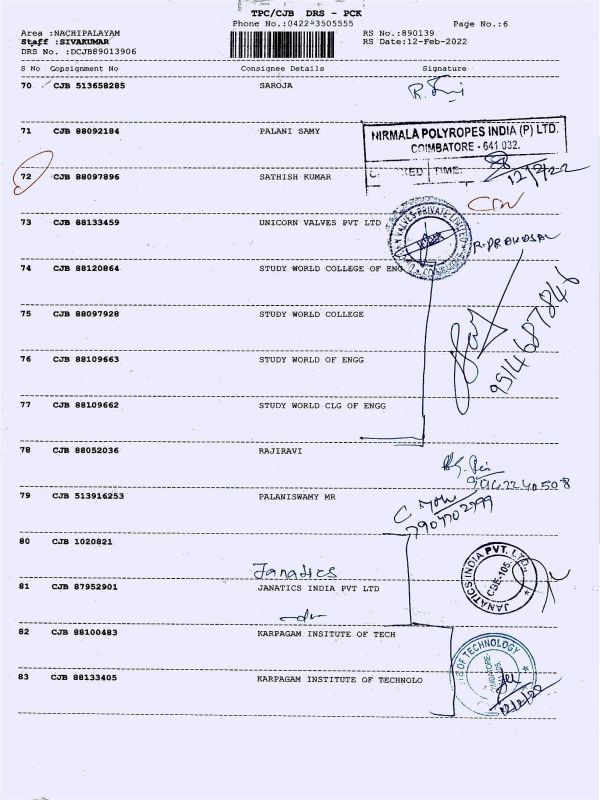 TPC/CJB DRS - PCK
Phone No.:0422-3505555 Page No.:6
Area :NACHIPALAYAM RS No.:890139
Staff :SIVAKUMAR RS Date:12-Feb-2022
DRS No. :DCJB89013906
S No Consignment No Consignee Details Signature
70 CJB 513658285 SAROJA
71 CJB 88092184 PALANI SAMY
NIRMALA POLYROPES INDIA (P) LTD.
COIMBATORE - 641 032.
72 CJB 88097896 SATHISH KUMAR
TIME
12/2/22
73 CJB 88133459 UNICORN VALVES PVT LTD
VALVES PRIVATE LIMITED
74 CJB 88120864 STUDY WORLD COLLEGE OF ENG
75 CJB 88097928 STUDY WORLD COLLEGE
9514687846
76 CJB 88109663 STUDY WORLD OF ENGG
77 CJB 88109662 STUDY WORLD CLG OF ENGG
78 CJB 88052036 RAJIRAVI
79 CJB 513916253 PALANISWAMY MR
80 CJB 1020821
Janatics
JANATICS INDIA PVT. LTD.
CBE-105.
81 CJB 87952901 JANATICS INDIA PVT LTD
82 CJB 88100483 KARPAGAM INSITUTE OF TECH
OF TECHNOLOGY
83 CJB 88133405 KARPAGAM INSTITUTE OF TECHNOLO
12/2/22